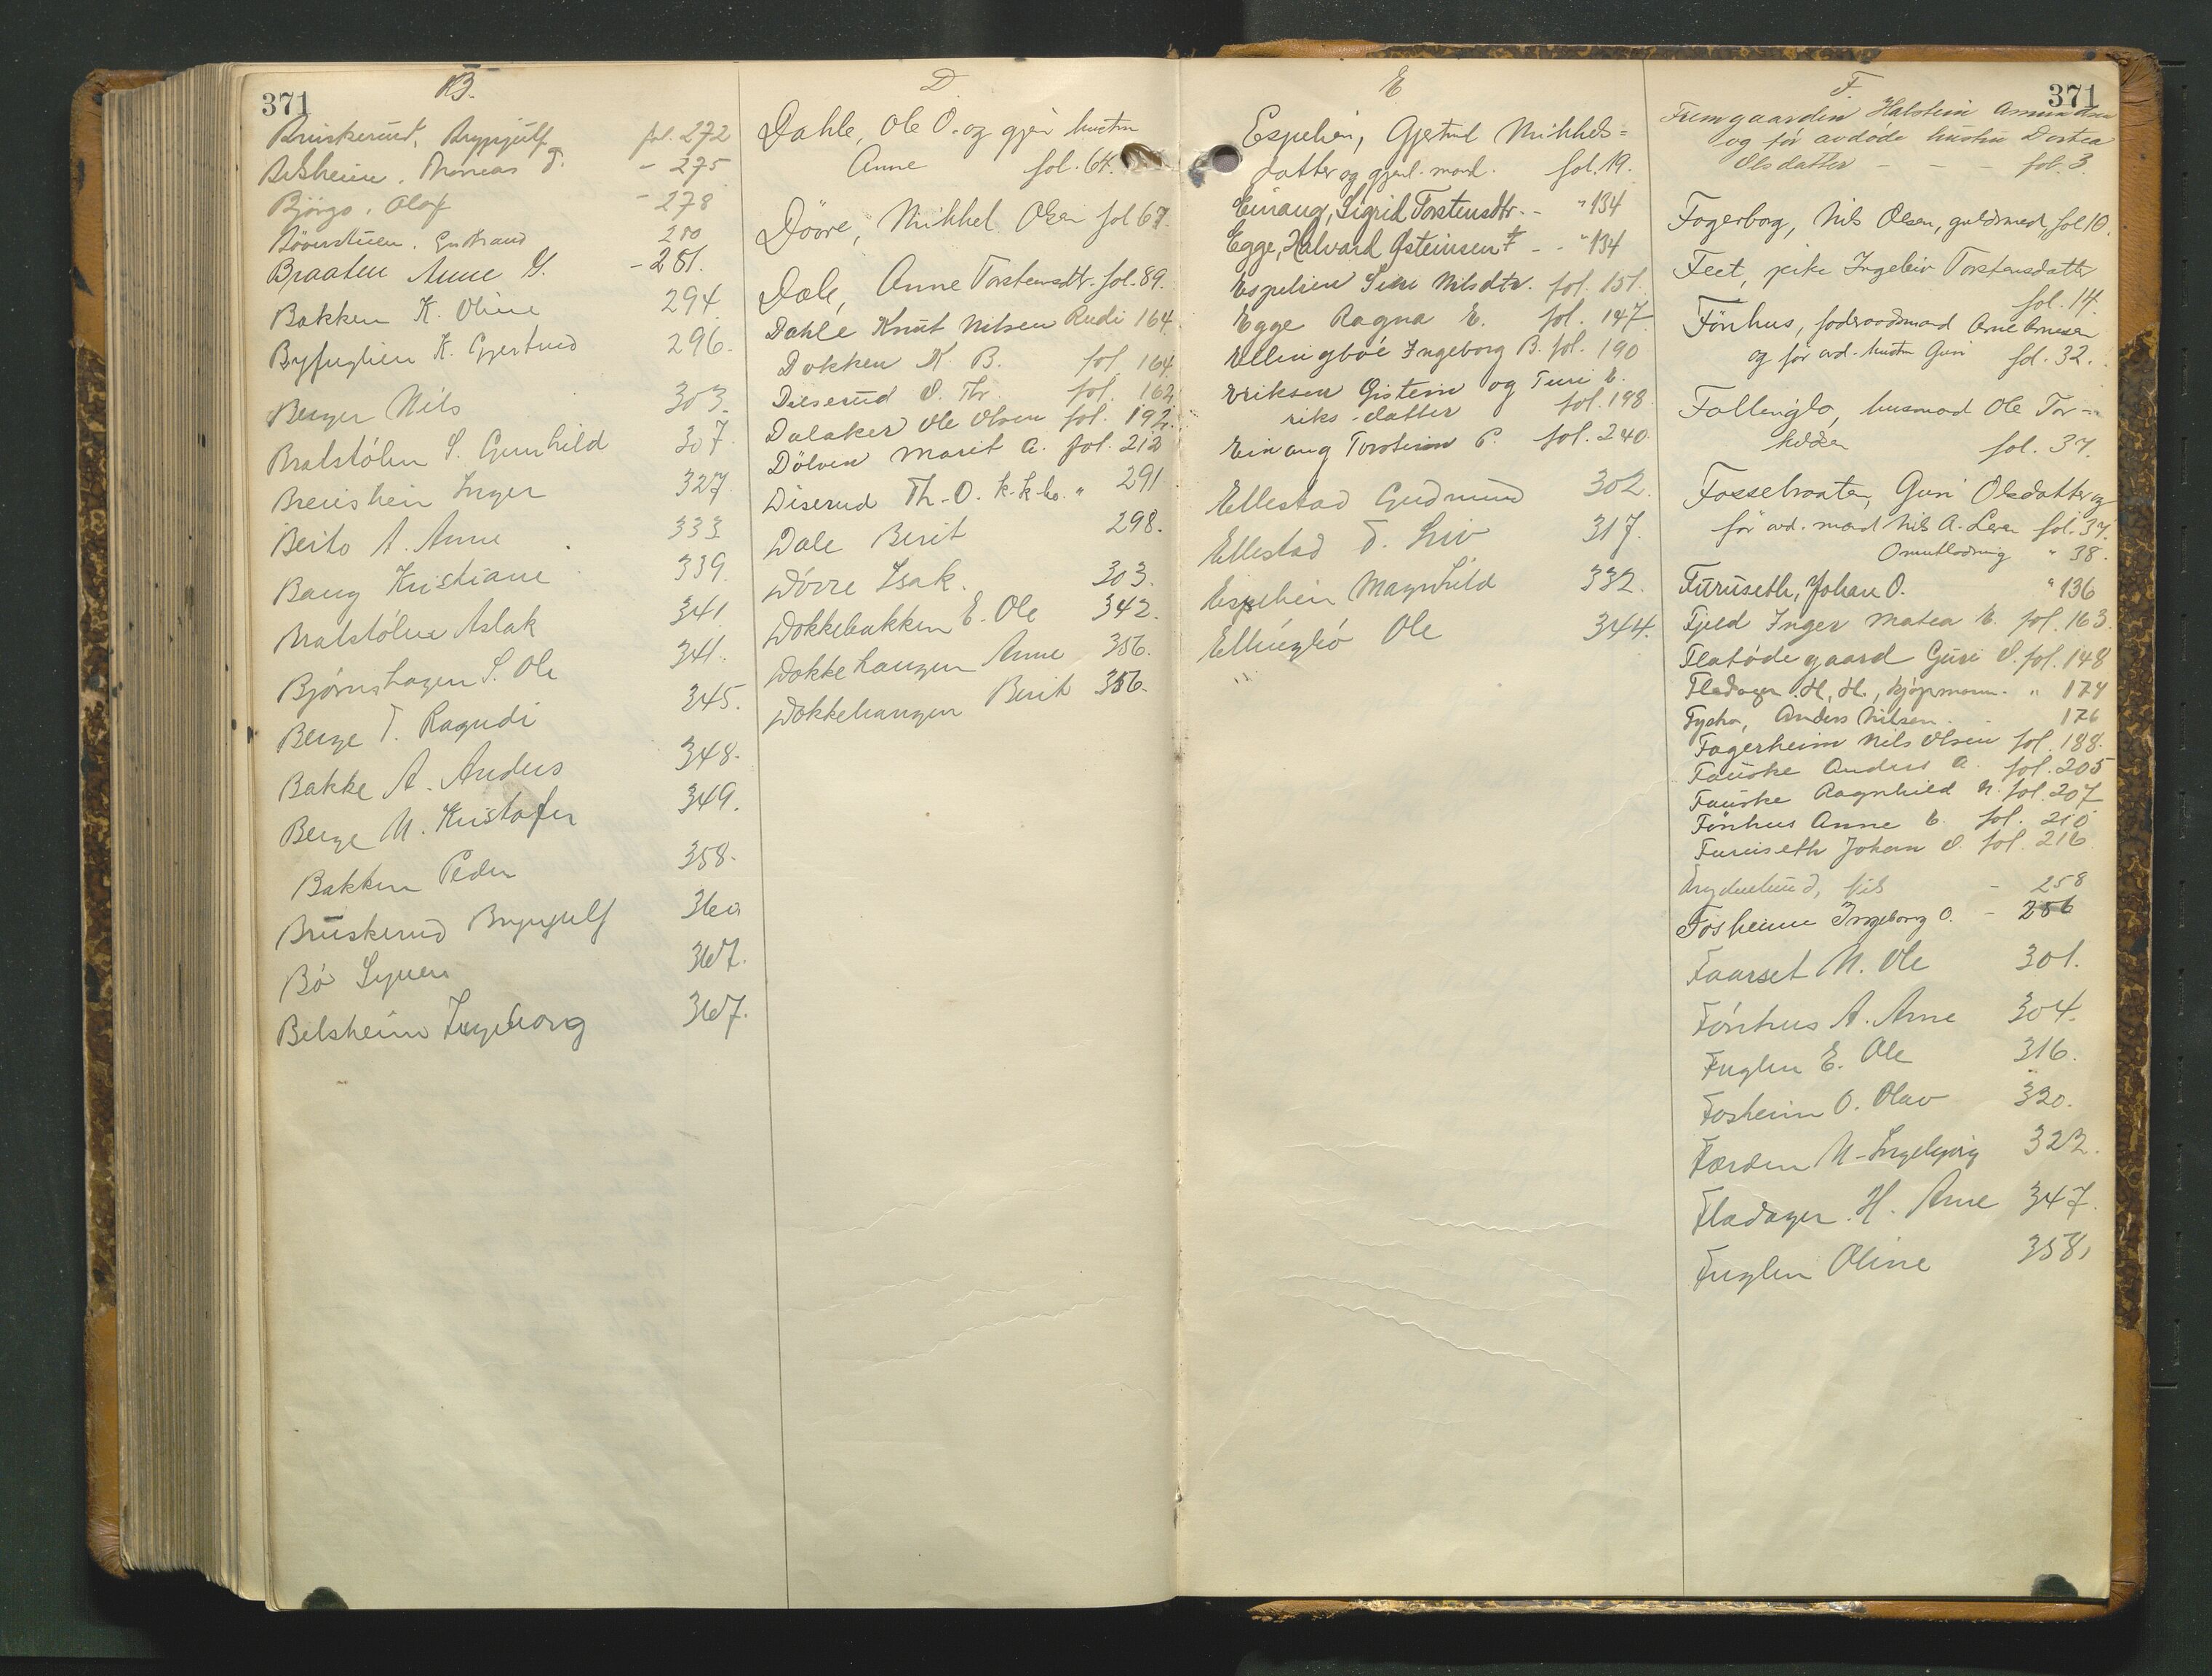 371
B.
Bruskerud, Brynjulf fol. 272
Belsheim, Thomas T. - 275
Björgo, Olaf - 278
Böverstuen, Gudbrand 280
Braaten Anne G. - 281.
Bakken K. Oline 294.
Byfuglien K. Gjertrud 296.
Berger Nils 303.
Bratstölen S. Gunhild 307.
Breiehein Inger 327.
Beito A. Anne 333
Bang Kristiane 339.
Bratstölen Aslak 341.
Bjørnshagen S. Ole 341.
Berge T. Ragndi 345.
Bakke A. Anders 348.
Berge N. Kristofer 349.
Bakken Peder 358.
Bruskerud Brynjulf 360
Bö Syver 367.
Belsheim Ingeborg 367.
D.
Dahle, Ole O. og gjen hustru
Anne fol. 64.
Døvre, Mikkel Olsen fol 67.
Dale, Anne Torstensdtr. fol. 89.
Dahle Knut Nilsen Rudi 164.
Dokken K. B. fol. 164.
Diserud O. Th. fol. 162
Dalaker Ole Olsen fol. 192.
Dölven Marit A. fol. 212
Diserud Th. O. k.k.bo. " 291.
Dale Berit 298.
Dövre Isak. 303.
Dokkebakken E. Ole 342.
Dokkehaugen Anne 356.
Dokkehaugen Berit 356.
E
Espelien, Gjertrud Mikkels=
datter og gjenl. mand. fol. 19.
Einang, Sigrid Torstensdtr. - " 134
Egge, Halvard Østeinsen - - " 134
Espelien Siri Nilsdtr. fol. 151.
Egge Ragna E. fol. 147
Ellingbøe Ingeborg B. fol. 190
Eriksen Øistein og Turi E.
riks-datter fol. 198
Einang Torstein P. fol. 240.
Ellestad Gudmund 302.
Ellestad T. Liv 317.
Espelien Magnhild 332.
Ellingbö Ole 344.
F.
371
Fremgaarden Halstein Amundsen
og før avdöde hustru Dortea
Olsdatter - - - fol. 3.
Fagerborg, Nils Olsen, guldsmed, fol 10.
Feet, pike Ingeleiv Torstensdatter
fol. 14.
Fönhus, foderaadsmand Arne Arnesen
og før avd. hustru Guri fol. 32.
Fallenglo, husmand Ole Tor-
kildsen fol. 37.
Fossebraaten, Guri Olsdatter og
før avd. mand Nils A. fol. 37.
Omutlodning " 38.
Furuseth, Johan O. " 136
Fjeld Inger Matea E. fol. 163.
Flatödegaard Guri O. fol. 148
Fladager H. H., kjøpmann. " 174
Anders Nilsen. 176
Fagerheim Nils Olsen fol. 188.
Fauske Anders A. fol. 205
Fauske Ragnhild N. fol. 207
Fönhus Anne E. fol. 210
Furuseth Johan O. fol. 216
Frydenlund, Nils - 258
Fosheim Ingeborg O. - 286
Faarset N. Ole 301.
Fönhus A. Arne 304.
Fuglen E. Ole 316.
Fosheim O. Olav 320.
Færden N. Ingebjørg 322.
Fladager H. Arne 347.
Fuglen Oline 358,